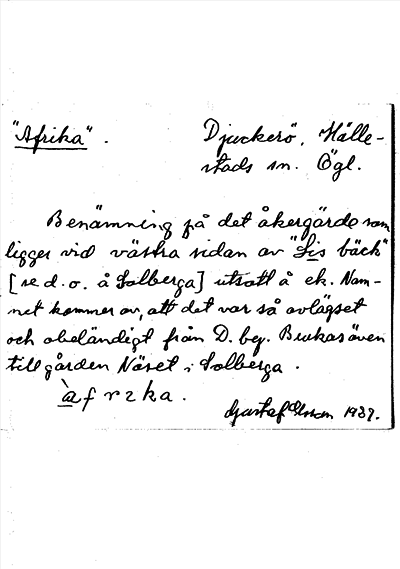 "Afrika". Djuckerö, Hälle-
stads sn. Ögl.
Benämning på det åkergärde som
ligger vid västra sidan av "Lis bäck"
[se d. o. å Solberga] utsatt å ek. Nam-
net kommer av, att det var så avlägset
och obeländigt från D. by. Brukas även
till gården Näset i Solberga.
àfrıka.
Gustaf Olsson 1937.